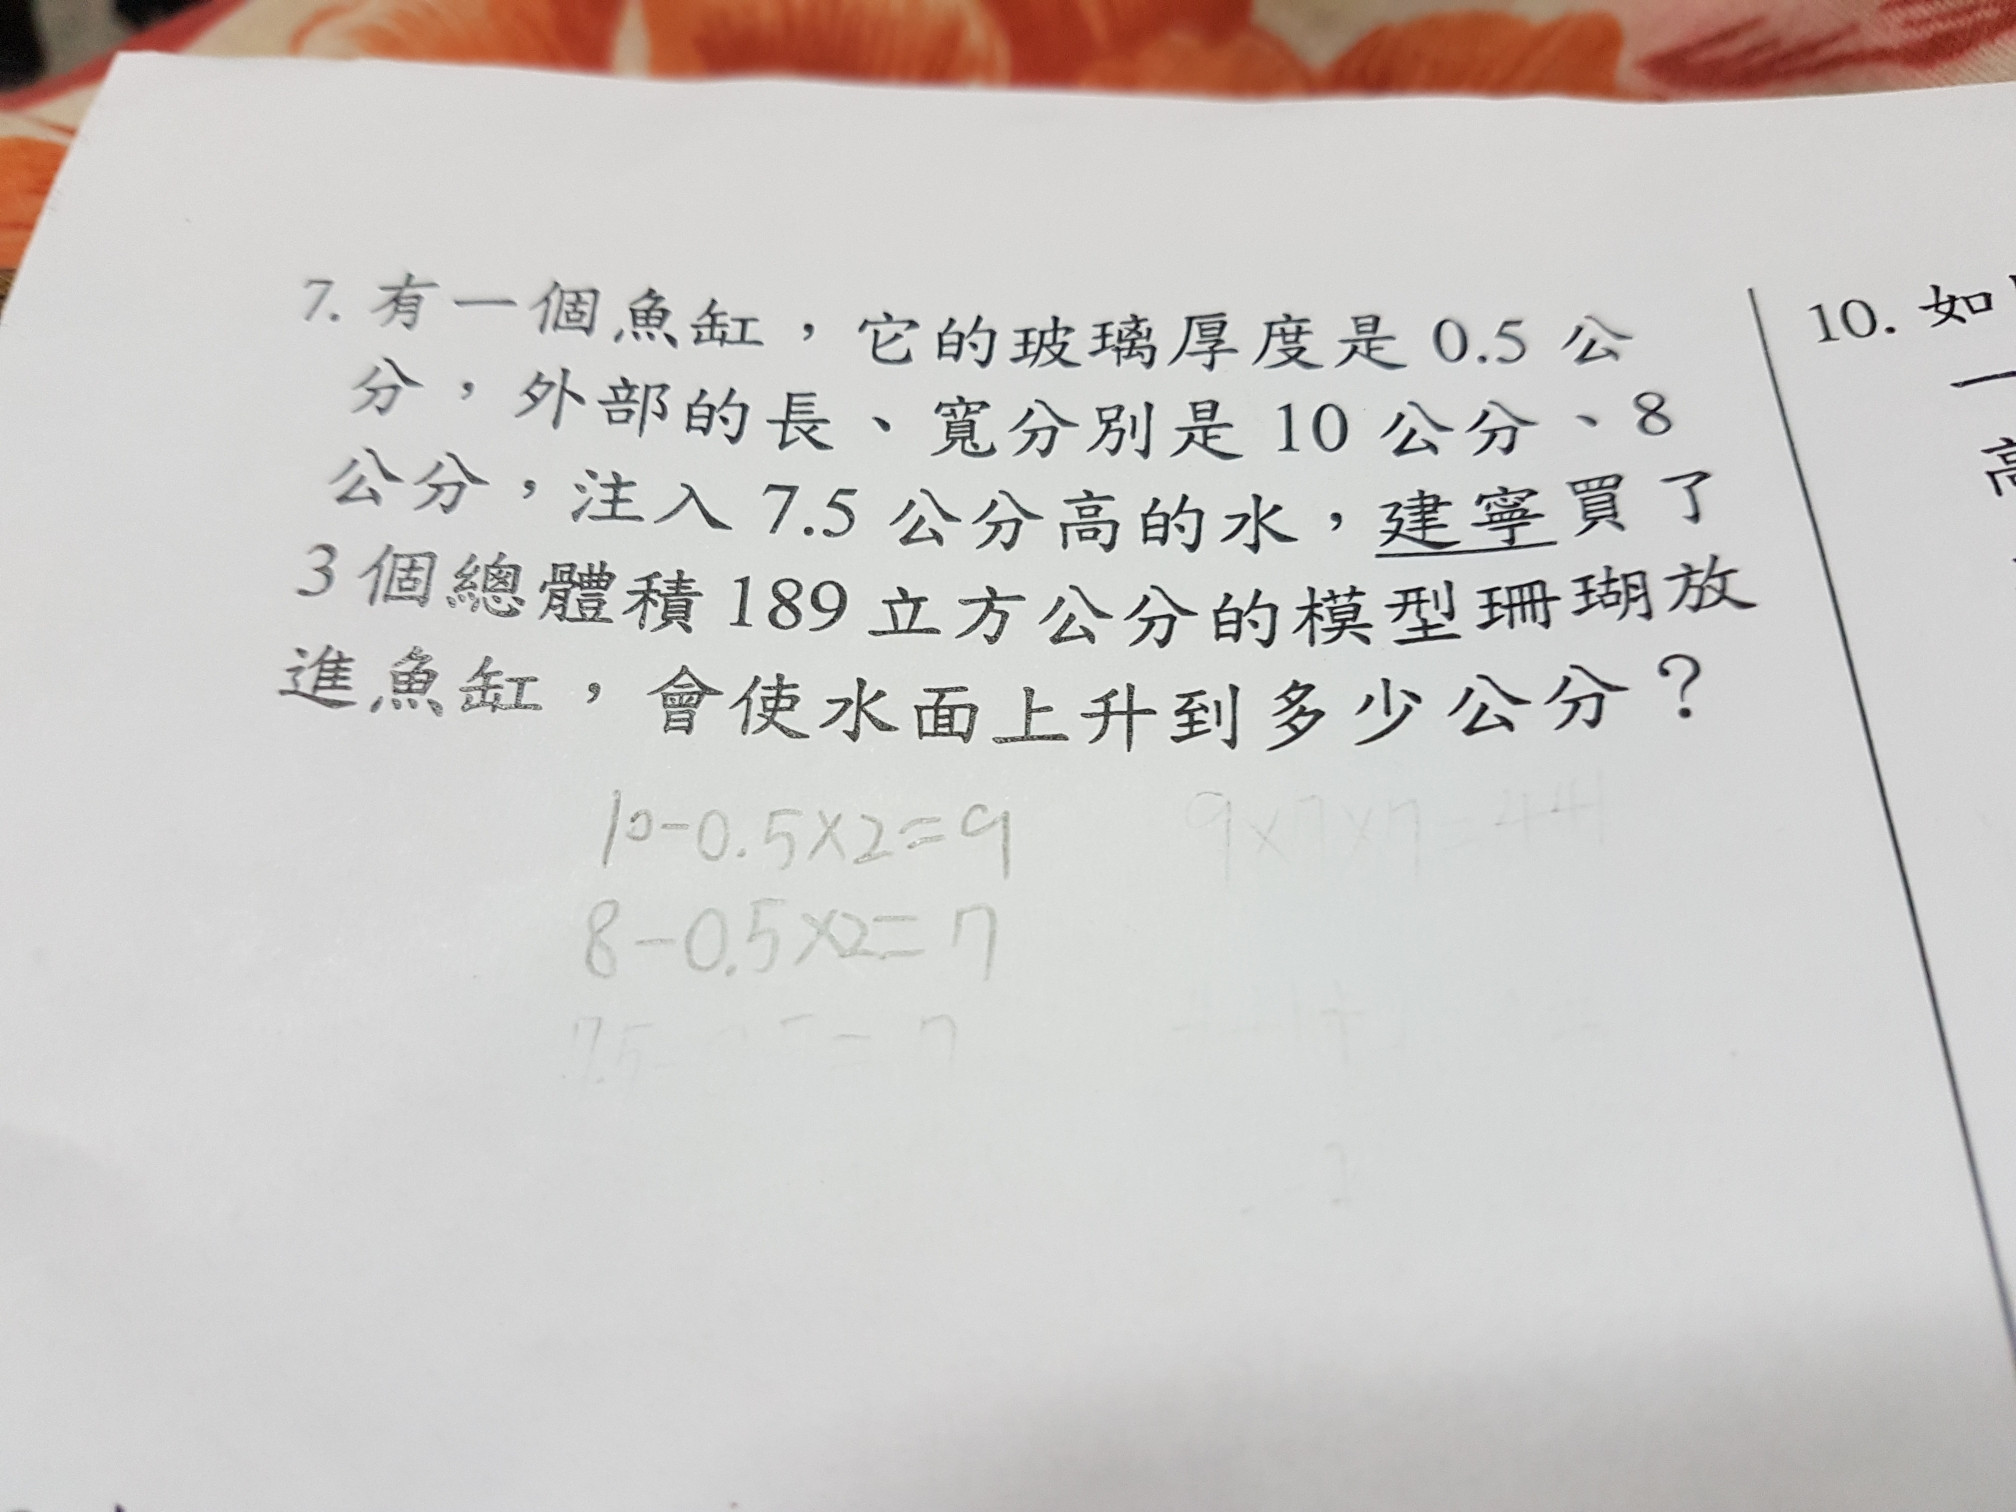 7. 有一個魚缸，它的玻璃厚度是 0.5 公
分，外部的長、寬分別是 10 公分、8
公分，注入 7.5 公分高的水，建寧買了
3 個總體積 189 立方公分的模型珊瑚放
進魚缸，會使水面上升到多少公分？
10-0.5×2=9
9×7×7=441
8-0.5×2=7
10. 如
一
高